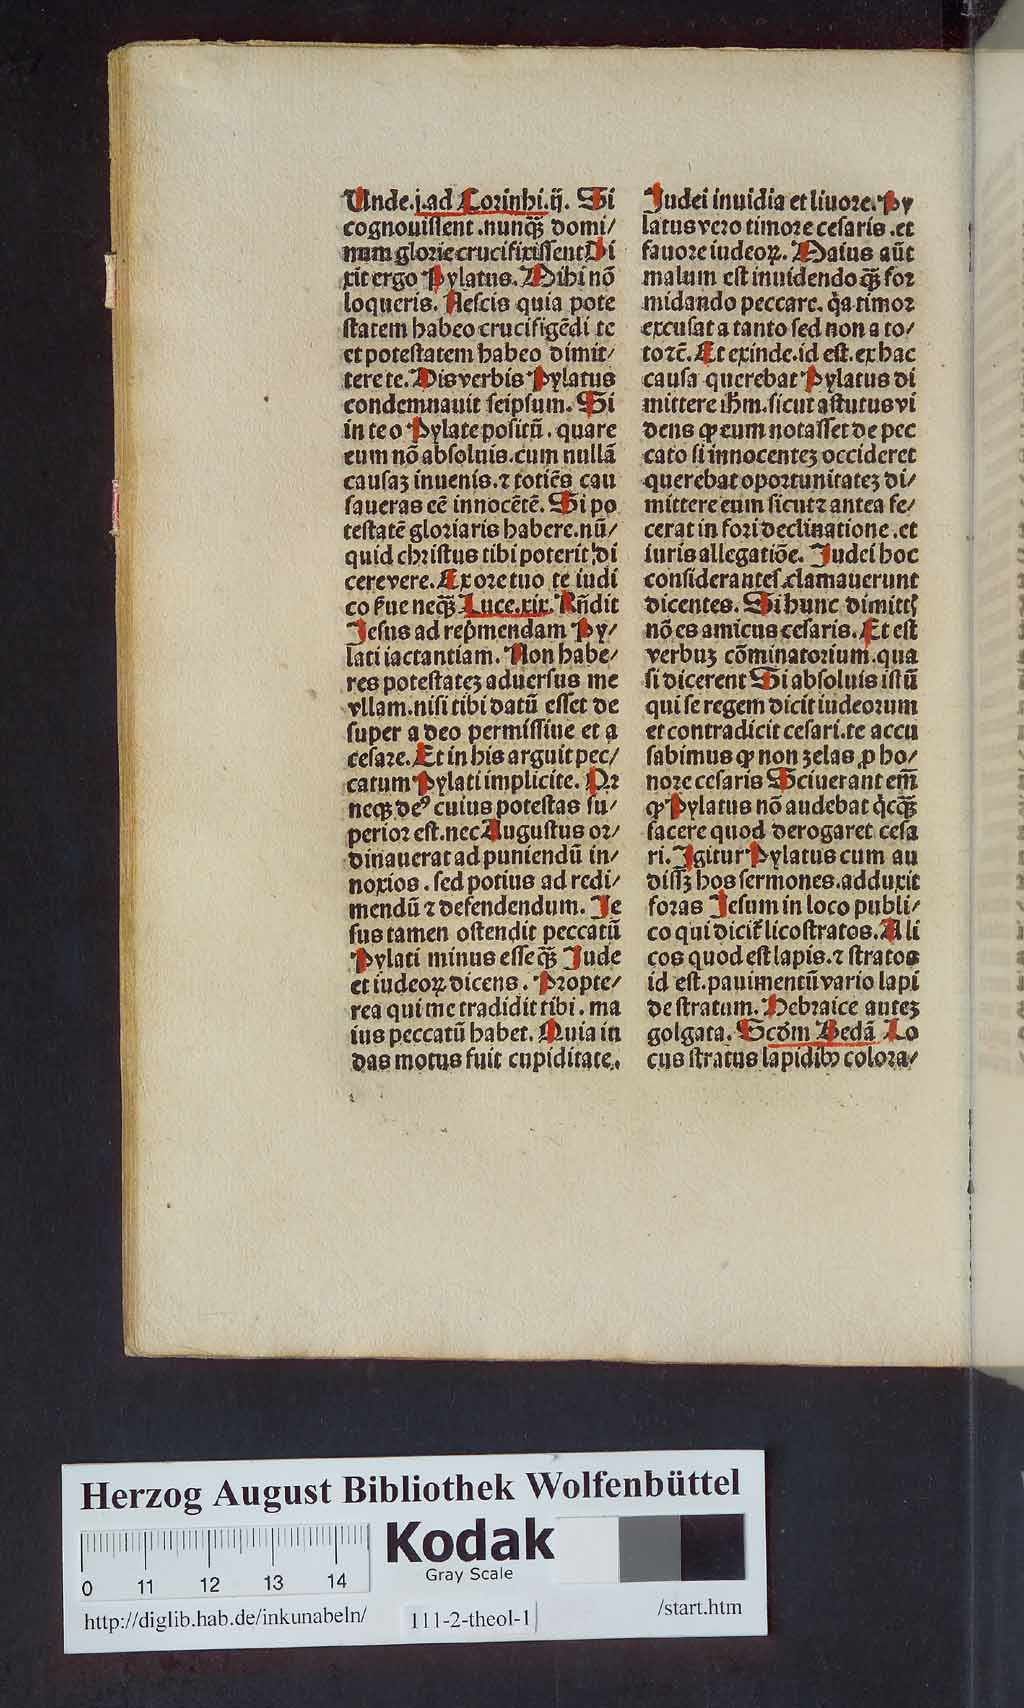 Unde.j.ad Corinhi.ij. Si
cognouissent .nunq̄ȝ domi/
num glorie crucifixissent Di
xit ergo Pylatus. Mihi nō
loqueris. Nescis quia pote
statem habeo crucifigēdi te
et potestatem habeo dimit/
tere te. His verbis Pylatus
condemnauit seipsum. Si
in te o Pylate positū . quare
eum nō absoluis.cum nullā
causaȝ inuenis.⁊ totiēs cau
saueras eē innocētē. Si po
testatē gloriaris habere.nū/
quid christus tibi poterit di
cere vere. Ex ore tuo te iudi
co s̄ue neq̄ȝ Luce.xix. Rn̄dit
Jesus ad rep̄mendam Py/
lati iactantiam. Non habe/
res potestateȝ aduersus me
vllam.nisi tibi datū esset de
super a deo permissiue et a
cesare. Et in his arguit pec/
catum Pylati implicite. Qꝛ
neqȝ deꝰ cuius potestas su/
perior est.nec Augustus or/
dinauerat ad puniendū in/
noxios . sed potius ad redi/
mendū ⁊ defendendum. Je
sus tamen ostendit peccatū
Pylati minus esse q̄ȝ Jude
et iudeoꝝ dicens . Propte/
rea qui me tradidit tibi . ma
ius peccatū habet. Quia iu
das motus fuit cupiditate.
Judei inuidia et liuore. Py
latus vero timore cesaris .et
fauore iudeoꝝ. Maius aūt
malum est inuidendo q̄ȝ for
midando peccare. q̇a timor
excusat a tanto sed non a to/
torē. Et exinde.id est.ex hac
causa querebat Pylatus di
mittere ih̄m.sicut astutus vi
dens ꝙ eum notasset de pec
cato si innocenteȝ occideret
querebat oportunitateȝ di/
mittere eum sicut ⁊ antea fe/
cerat in fori declinatione .et
iuris allegatiōe. Judei hoc
considerantes clamauerunt
dicentes. Si hunc dimittꝭ
nō es amicus cesaris. Et est
verbuȝ cōminatorium.qua
si dicerent Si absoluis istū
qui se regem dicit iudeorum
et contradicit cesari.te accu
sabimus ꝙ non zelas ꝓ ho/
nore cesaris Sciuerant em̄
ꝙ Pylatus nō audebat q̇cq̄ȝ
facere quod derogaret cesa
ri. Igitur Pylatus cum au
dissȝ hos sermones.adduxit
foras Jesum in loco publi/
co qui dicit̄ licostratos. A li
cos quod est lapis.⁊ stratos
id est.pauimentū vario lapi
de stratum. Hebraice auteȝ
golgata. Scd̄m Bedā Lo
cus stratus lapidibꝰ colora/
Herzog August Bibliothek Wolfenbüttel
Kodak
Gray Scale
0 11 12 13 14
http://diglib.hab.de/inkunabeln/
111-2-theol-1
/start.htm